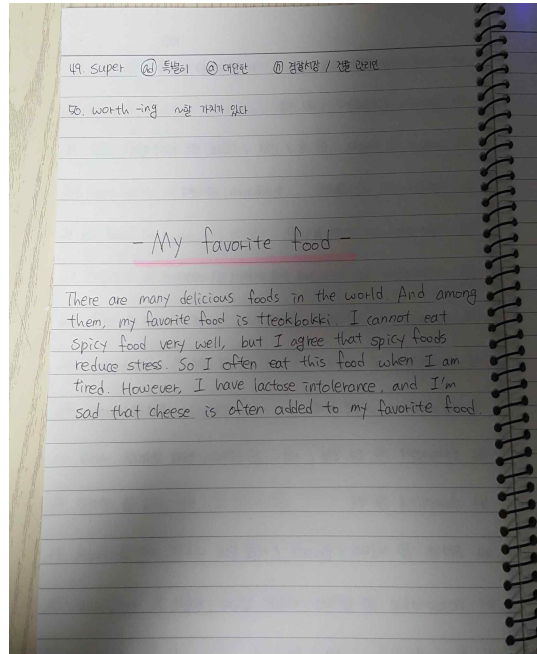 49. super ⓐd 특별히 ⓐ 대단한 ⓝ 경찰서장 / 건물 관리인
50. worth -ing ~할 가치가 있다
- My favorite food -
There are many delicious foods in the world. And among
them, my favorite food is tteokbokki. I cannot eat
spicy food very well, but I agree that spicy foods
reduce stress. So I often eat this food when I am
tired. However, I have lactose intolerance, and I'm
sad that cheese is often added to my favorite food.